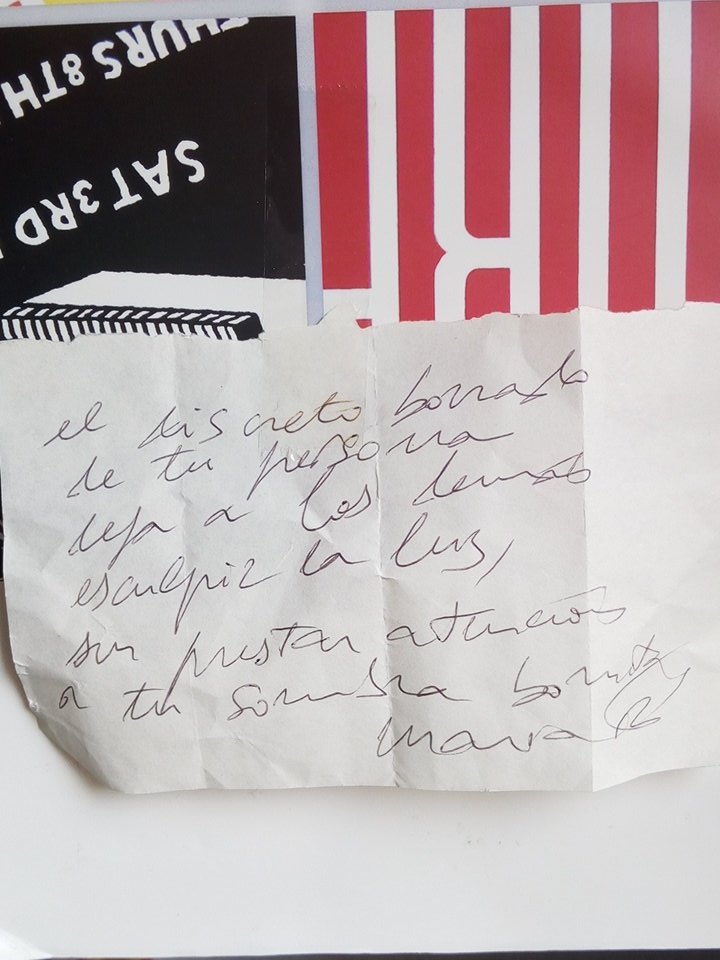 THURS 8TH
SAT 3RD
el discreto borrado
de tu persona
deja a los demás
esculpir la luz,
sin prestar atención
a tu sombra bonita,